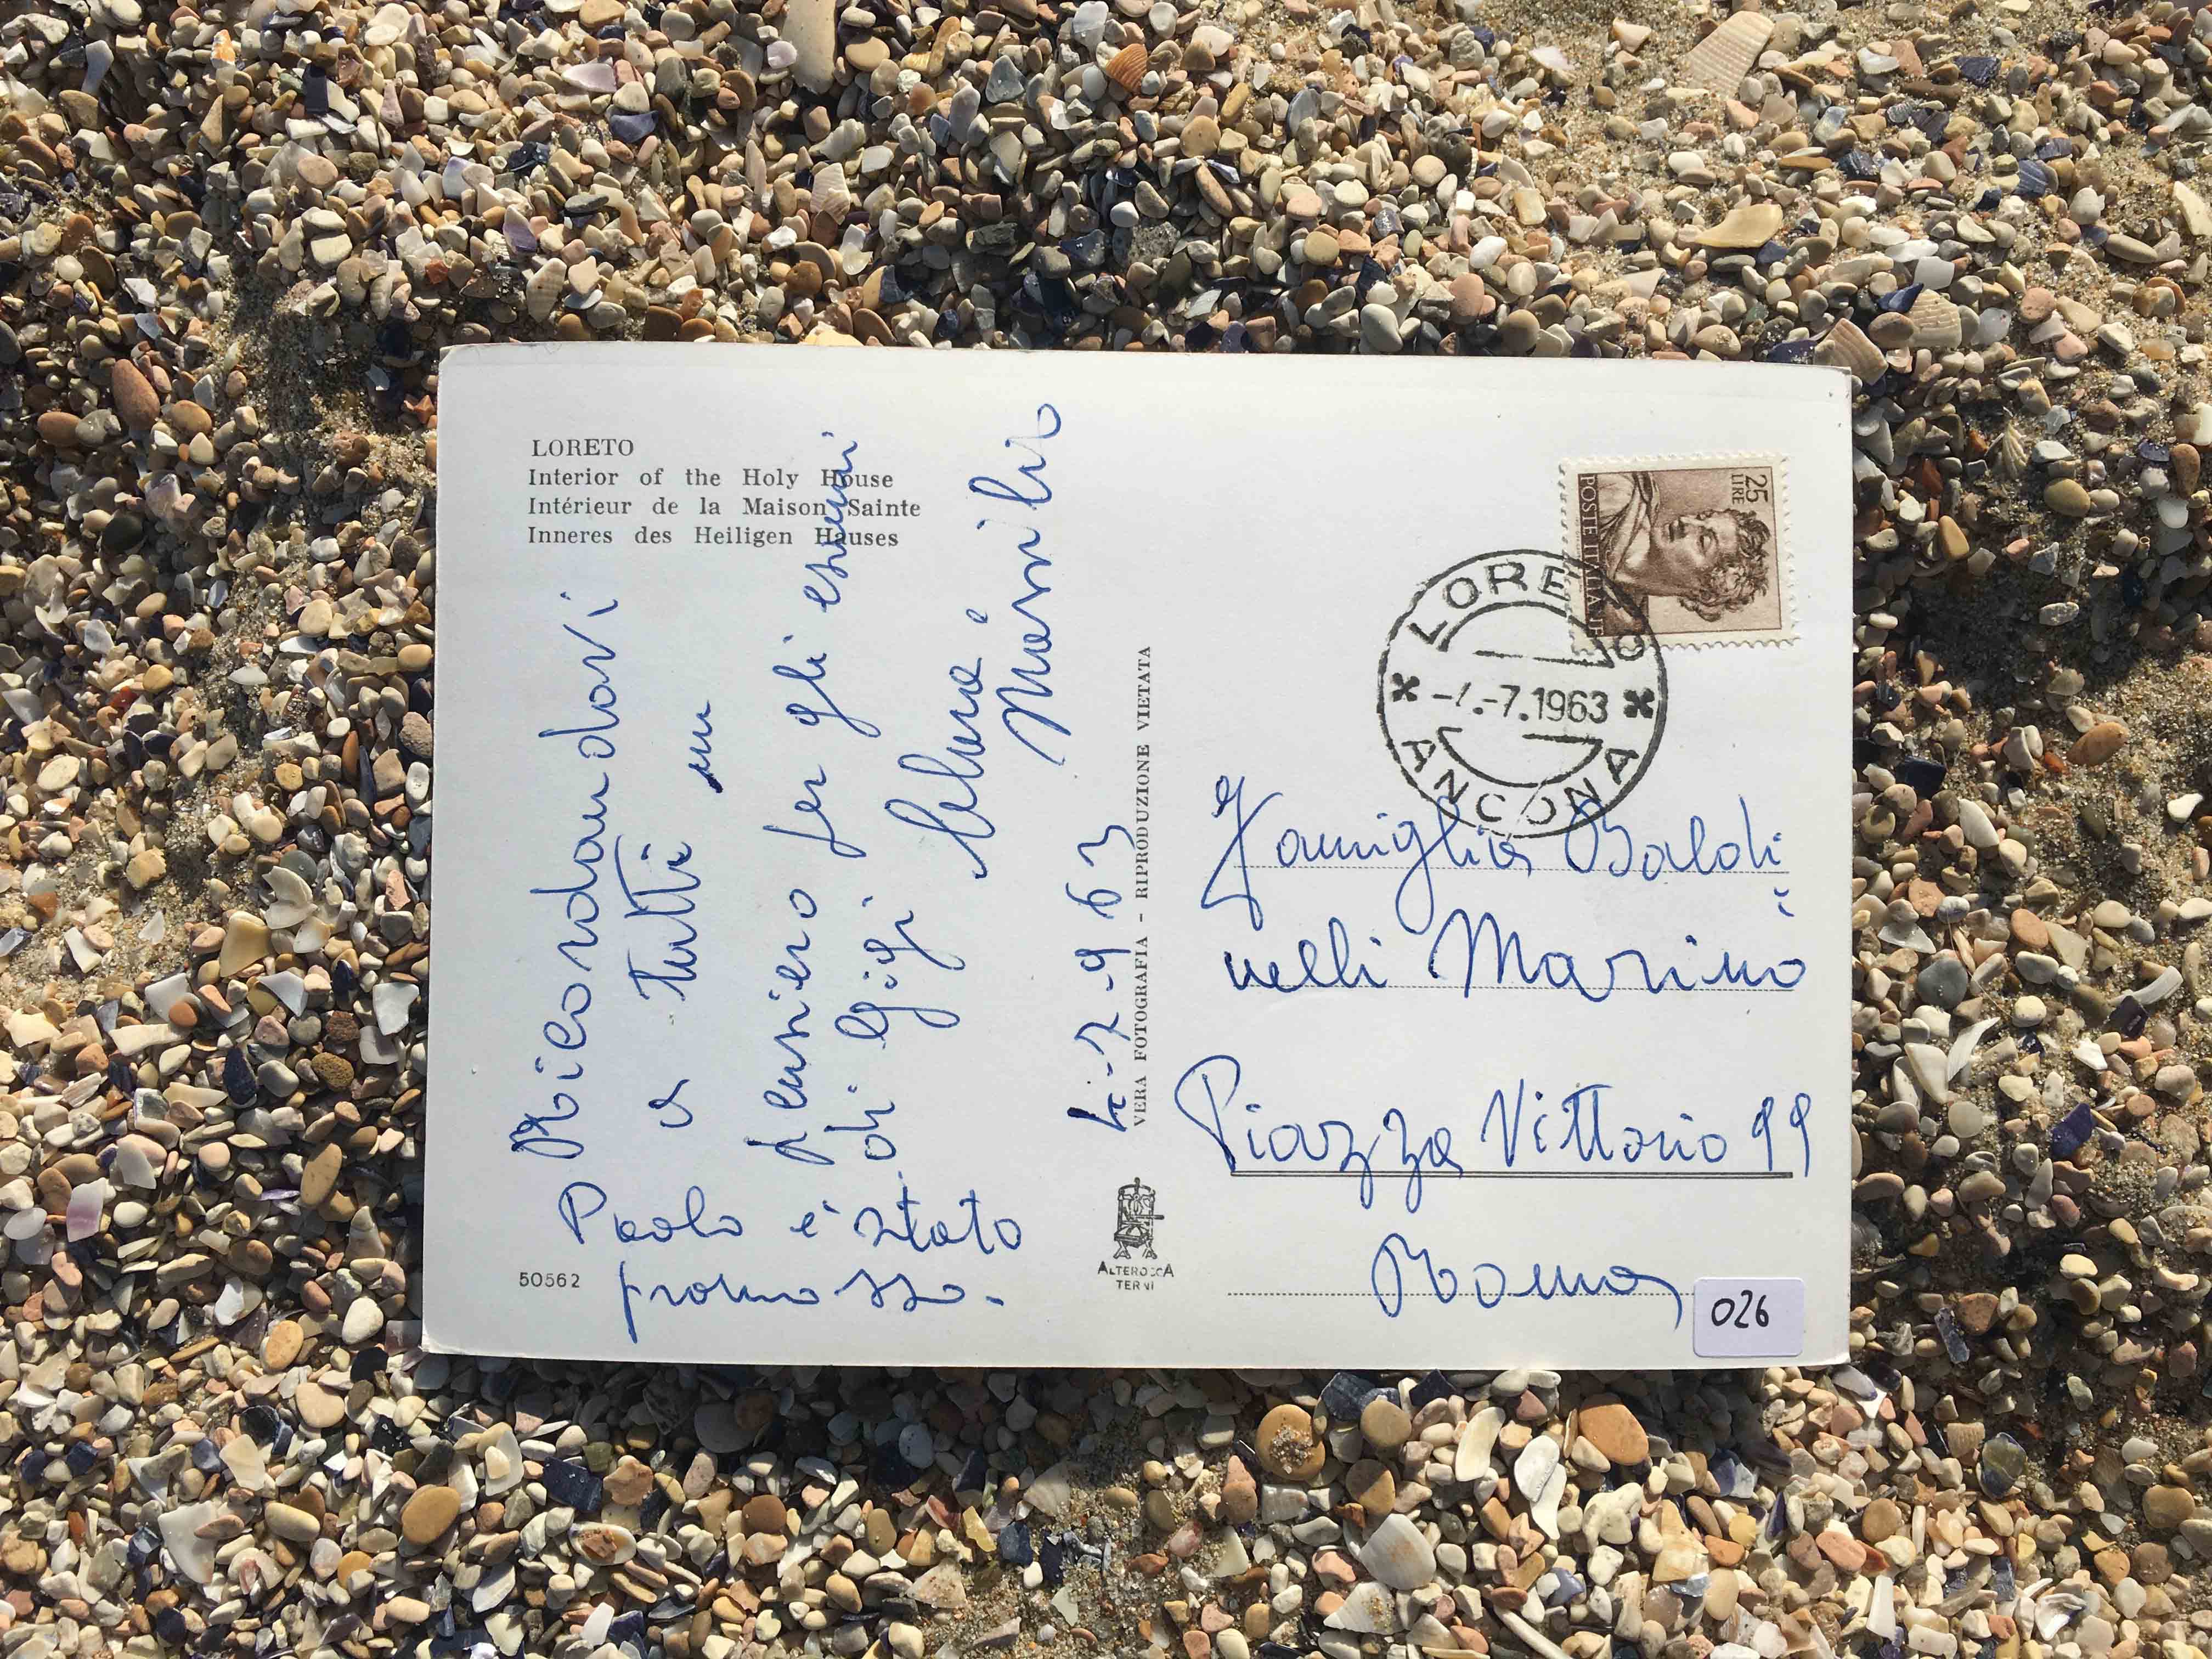 LORETO
Interior of the Holy House
Intérieur de la Maison Sainte
Inneres des Heiligen Hauses
Ricordandovi
a tutti un
pensiero per gli esami
di Gigi
Marsilio
4-7-963
Paolo è stato
promosso.
50562
VERA FOTOGRAFIA - RIPRODUZIONE VIETATA
ALTEROCCA
TERNI
25
LIRE
POSTE ITALIANE
LORETO
-7.1963
ANCONA
Famiglia Baldi
nelli Marino
Piazza Vittorio 99
Roma
026